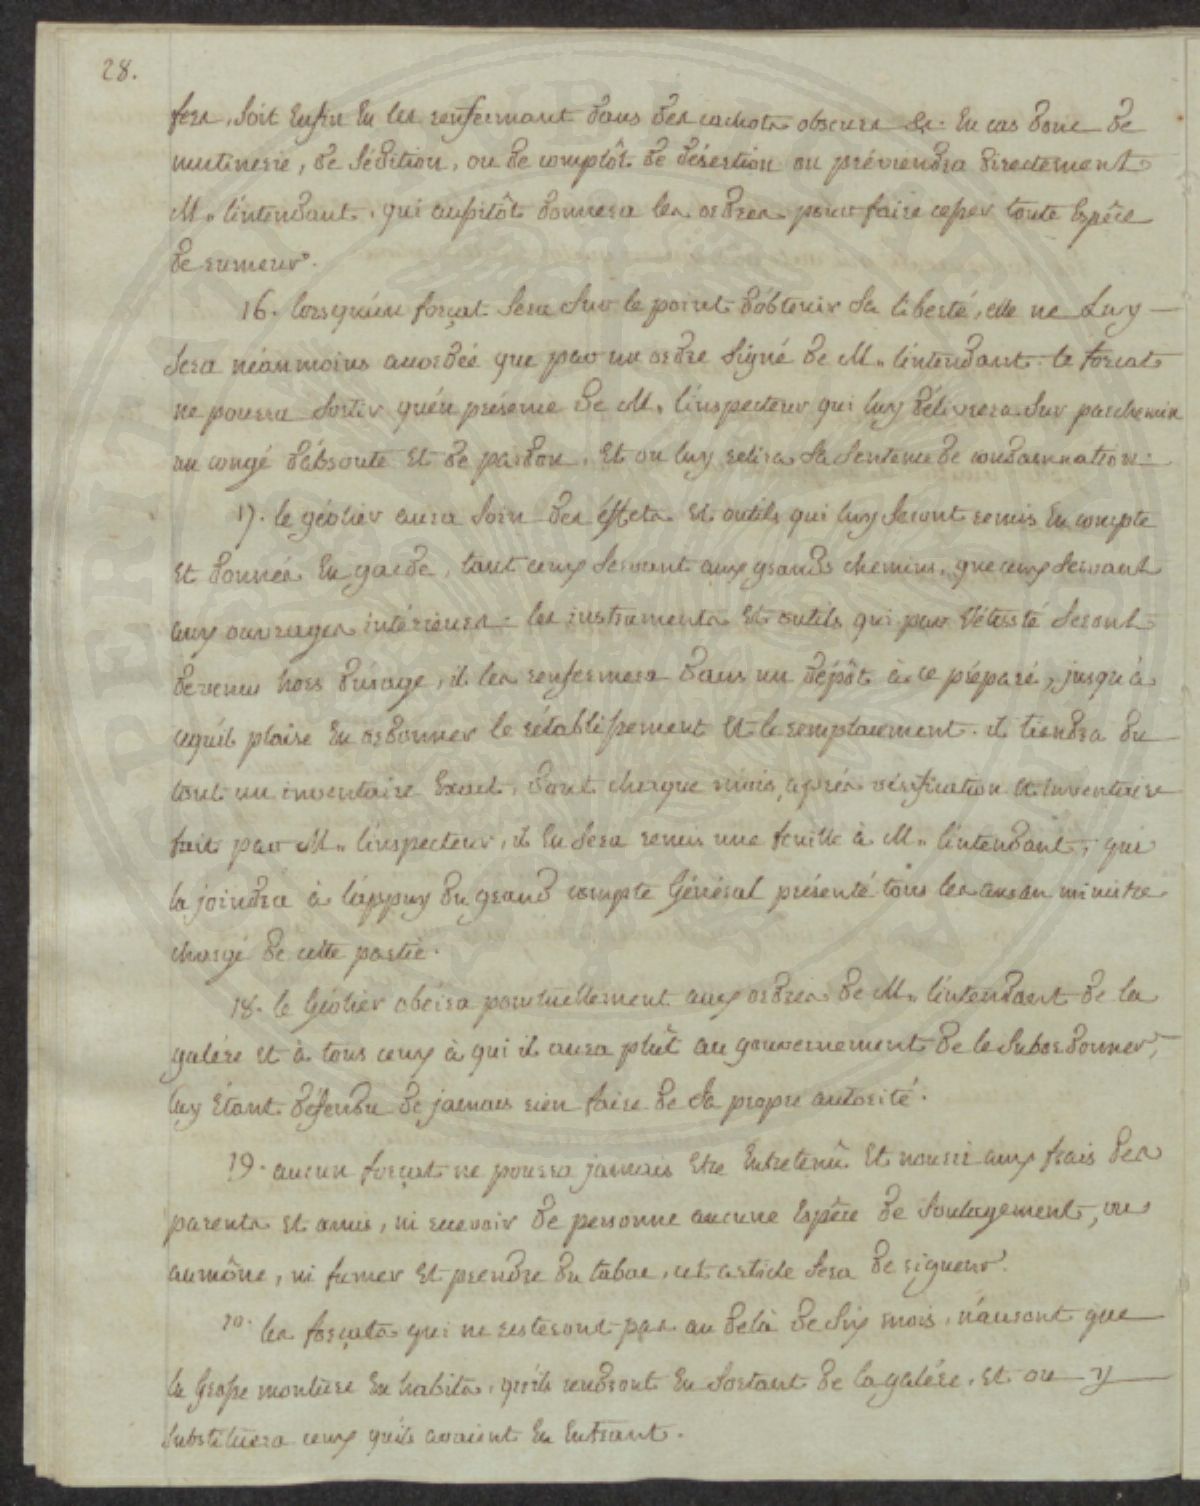 28.
fers, soit enfin en les renfermant dans des cachots obscurs &c. En cas donc de
mutinerie, de sédition, ou de complôt de désertion on préviendra directement
M.. l'intendant, qui aussitôt donnera les ordres pour faire cesser toute Espêce
de rumeur.
16. lorsqu'un forçat sera sur le point d'obtenir sa liberté, elle ne Luy
sera néanmoins accordée que par un ordre signé de M.. l'intendant. le forcat
ne pourra sortir qu'en présence de M.. l'inspecteur qui luy délivrera sur parchemin
un congé d'absoute et de pardon, Et on luy retira sa sentence de condamnation.
17. le géolier aura soin des éffets et outils qui luy seront remis en compte
et donnés en garde, tant ceux servant aux grands chemins, que ceux servant
aux ouvrages intérieurs. les instruments et outils qui par vétusté seront
devenus hors d'usage, il les renfermera dans un dépôt à ce préparé, jusqu'à
cequ'il plaise en ordonner le rétablissement et le remplacement. il tiendra du
tout un inventaire Exact, dont chaque mois, après vérification et inventaire
fait par M.. l'inspecteur, il en sera remis une feuille à M.. l'intendant, qui
la joindra à l'appuy du grand compte Général présenté tous les ans au ministre
chargé de cette partie.
18. le Géolier obéira ponctuellement aux ordres de M.. l'intendant de la
galére et à tous ceux à qui il aura plût au gouvernement de le subordonner,
luy étant défendu de jamais rien faire de sa propre autorité.
19. aucun forçat ne pourra jamais etre Entretenû et nourri aux frais des
parents et amis, ni recevoir de personne aucune Espêce de soulagement, ou
aumône, ni fumer et prendre du tabac, cet article sera de rigueur.
20. les forçats qui ne resteront pas au delà de six mois, n'auront que
la grosse monture en habits, qu'ils rendront en sortant de la galére, et on y
substituera ceux qu'ils avaient en Entrant.